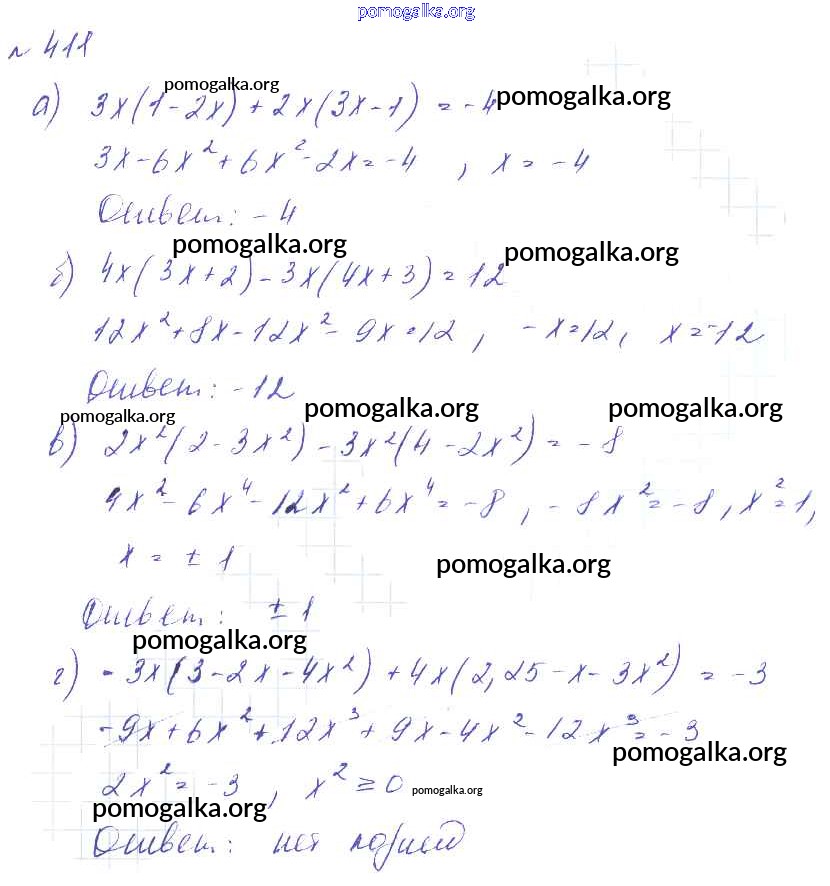 pomogalka.org
№ 411
а) 3x(1-2x)+2x(3x-1) = -4
pomogalka.org
pomogalka.org
3x-6x²+6x²-2x=-4 , x = -4
Ответ: -4
pomogalka.org
pomogalka.org
б) 4x(3x+2)-3x(4x+3)=12
12x²+8x-12x²-9x=12, -x=12, x=-12
Ответ: -12
pomogalka.org
pomogalka.org
pomogalka.org
в) 2x²(2-3x²)-3x²(4-2x²)=-8
4x²-6x⁴-12x²+6x⁴=-8, -8x²=-8, x²=1,
x = ±1
pomogalka.org
Ответ: ±1
pomogalka.org
г) -3x(3-2x-4x²)+4x(2,25-x-3x²) = -3
-9x+6x²+12x³+9x-4x²-12x³=-3
pomogalka.org
2x²=-3, x²≥0
pomogalka.org
pomogalka.org
Ответ: нет корней